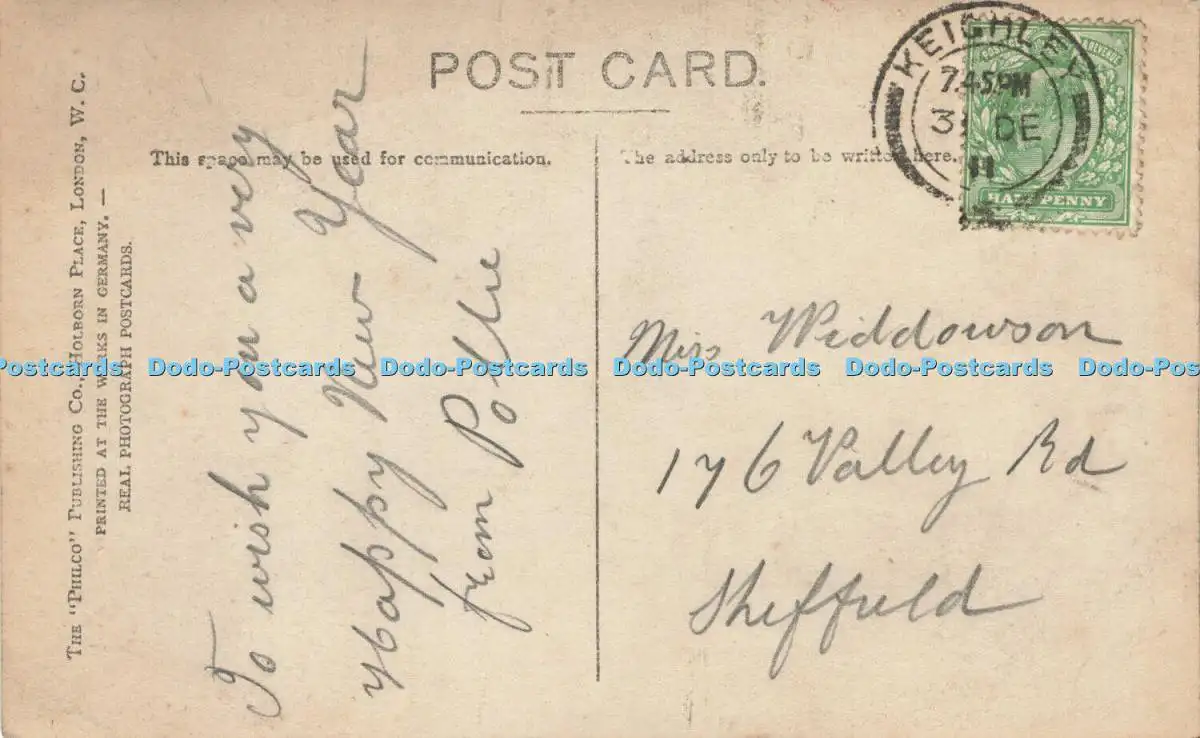 POST CARD.
This space may be used for communication.
The address only to be written here.
THE "PHILCO" PUBLISHING CO., HOLBORN PLACE, LONDON, W. C.
PRINTED AT THE WORKS IN GERMANY. —
REAL PHOTOGRAPH POSTCARDS.
To wish you a very
Happy New Year
from Pollie
KEIGHLEY
7.45PM
DE
11
REVENUE
HALFPENNY
Miss Widdowson
176 Valley Rd
Sheffield
Postcards Dodo-Postcards Dodo-Postcards Dodo-Postcards Dodo-Postcards Dodo-Pos